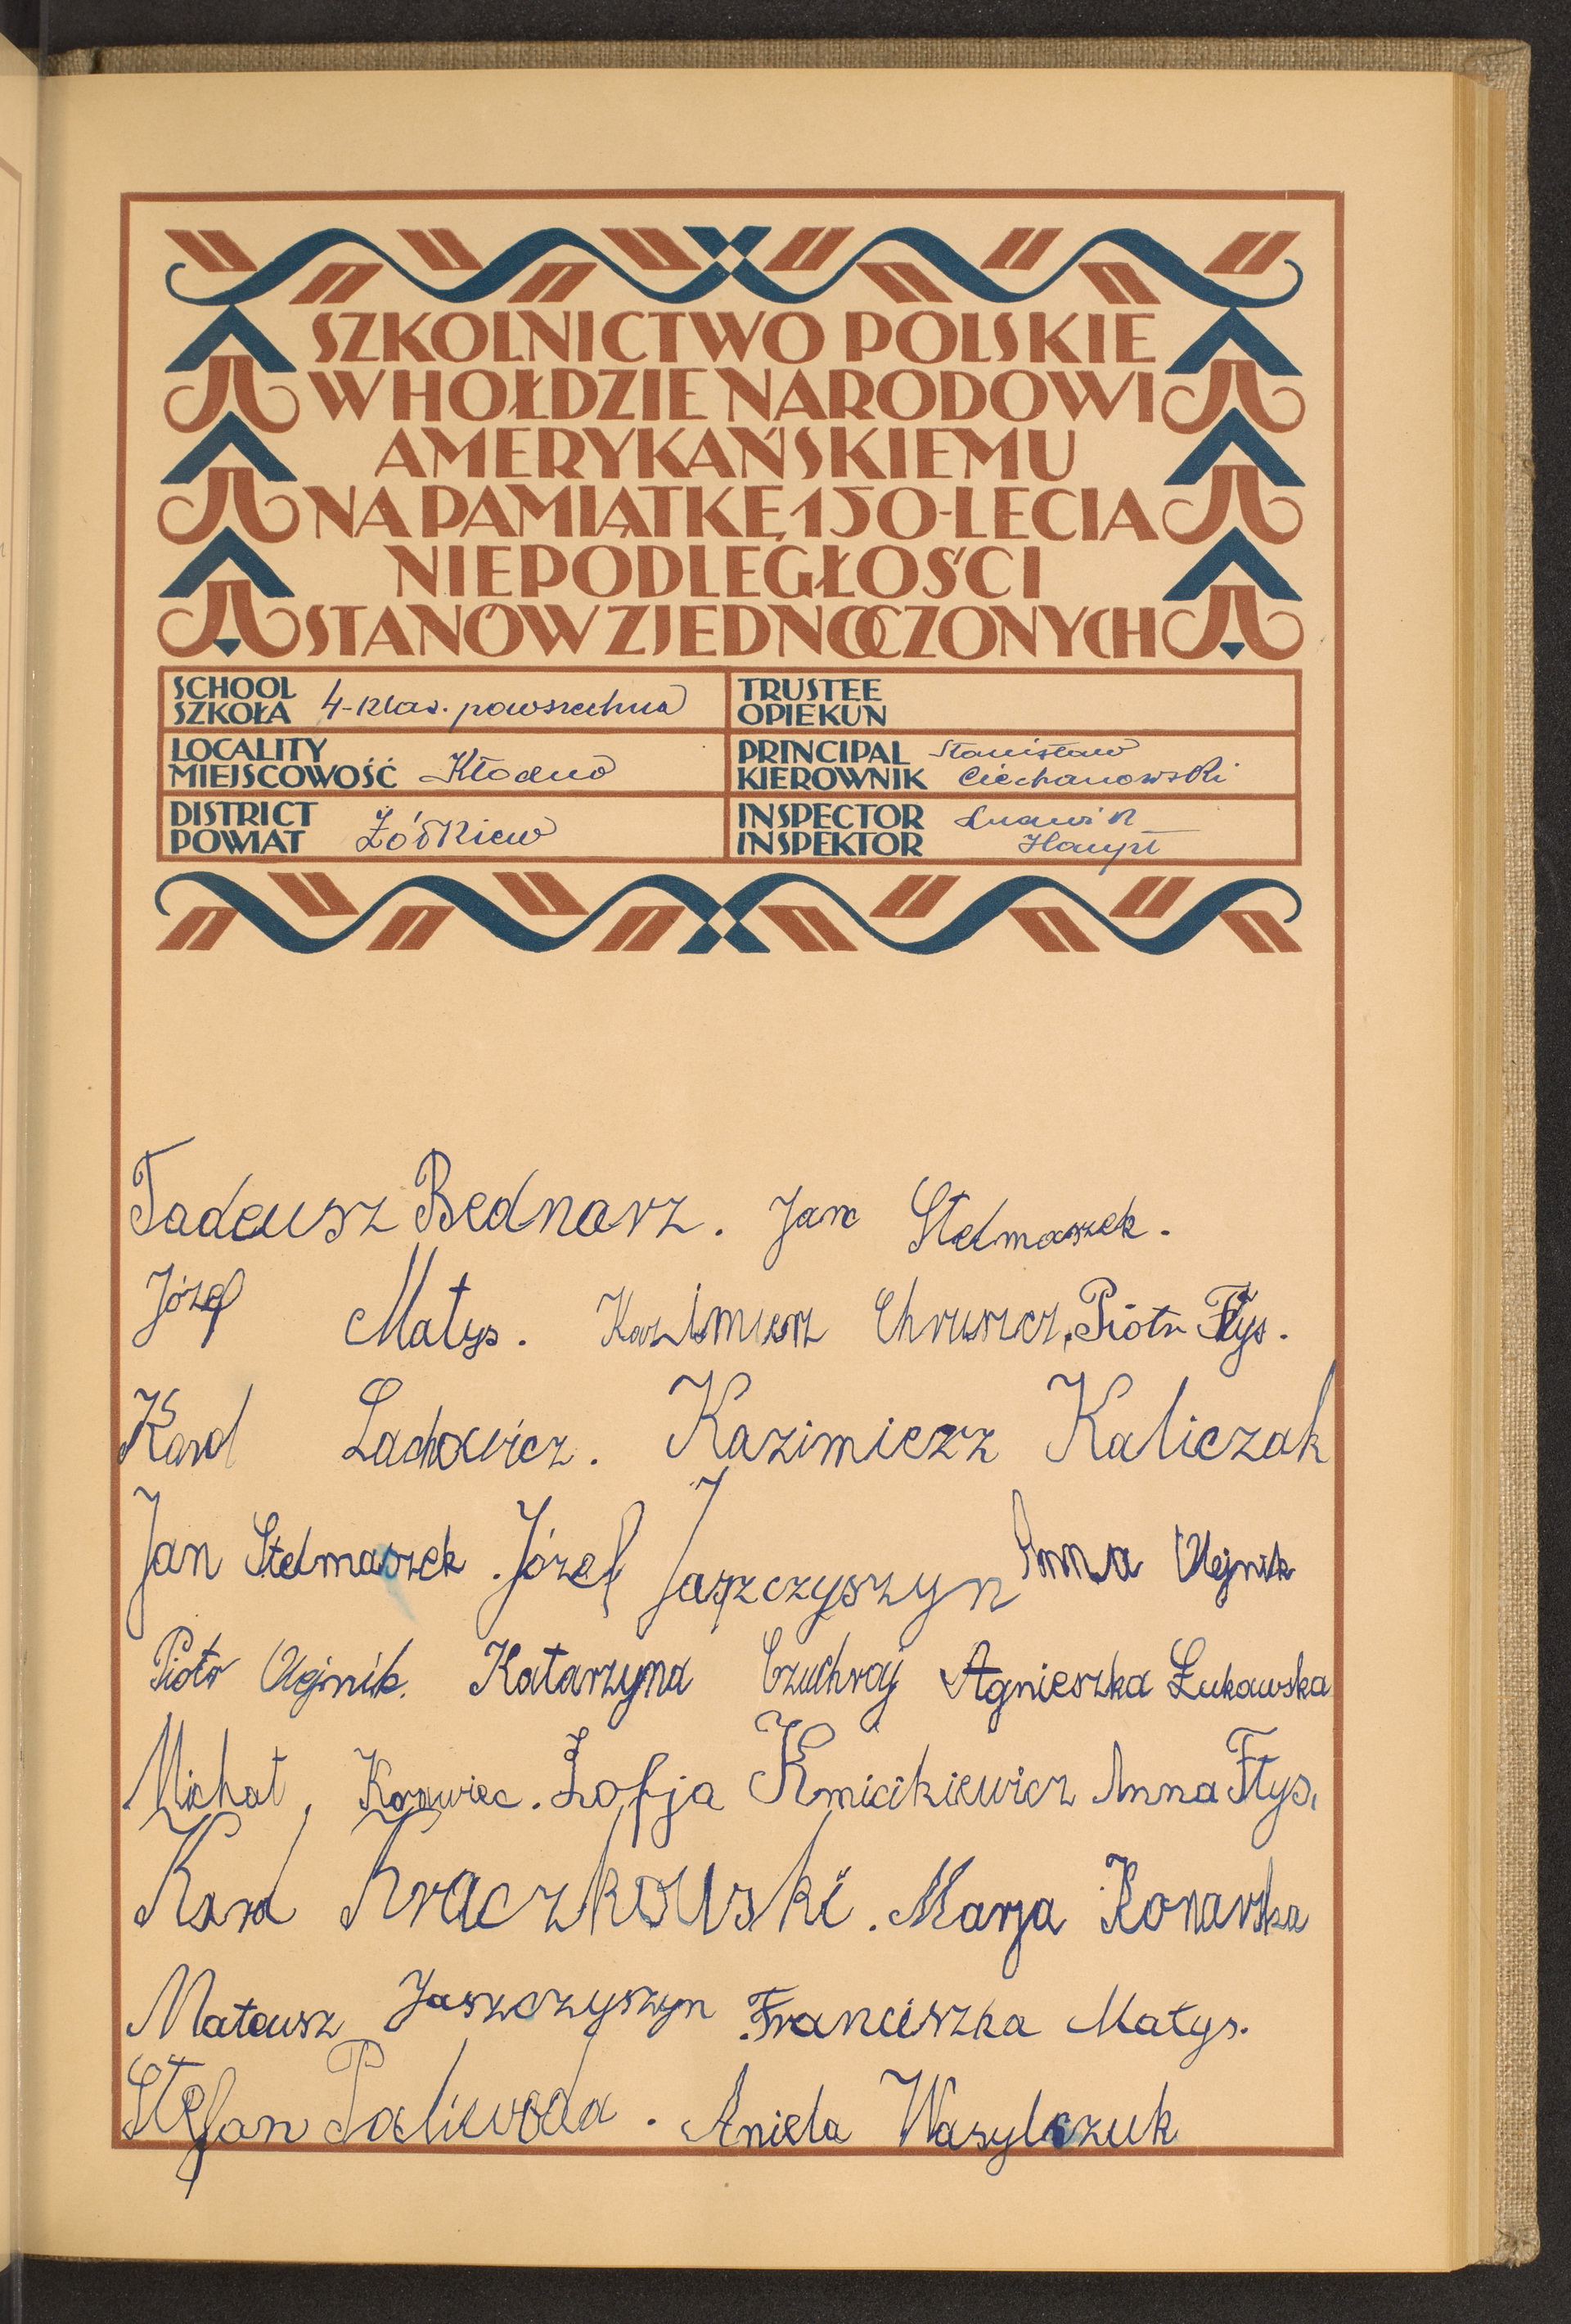 SZKOLNICTWO POLSKIE
W HOŁDZIE NARODOWI
AMERYKAŃSKIEMU
NA PAMIĄTKĘ 150-LECIA
NIEPODLEGŁOŚCI
STANÓW ZJEDNOCZONYCH
SCHOOL
SZKOŁA 4-klas. powszechna
TRUSTEE
OPIEKUN
LOCALITY
MIEJSCOWOŚĆ Kłodno
PRINCIPAL Stanisław
KIEROWNIK Ciechanowski
DISTRICT
POWIAT Żółkiew
INSPECTOR Ludwik
INSPEKTOR Haupt
Tadeusz Bednarz. Jan Stelmaszek.
Józef Matys. Kazimierz Chruszcz. Piotr Flys.
Karol Lachowicz. Kazimierz Kaliczak
Jan Stelmaszek. Józef Jaszczyszyn Anna Olejnik
Piotr Olejnik. Katarzyna Czuchraj Agnieszka Łukawska
Michał Korowiec. Zofja Kmicikiewicz Anna Flys.
Karol Kraczkowski. Marja Konarska
Mateusz Jaszczyszyn Franciszka Matys.
Stefan Paliwoda. Aniela Wasylczuk